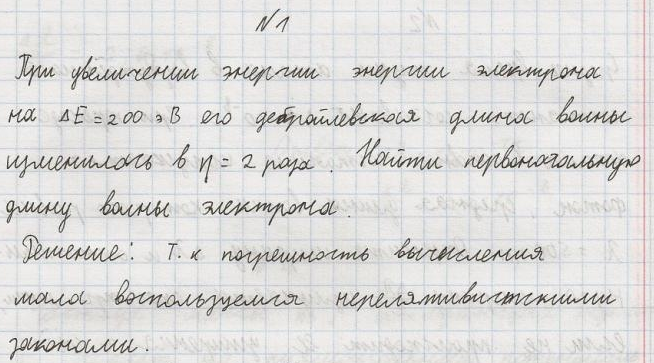 N1
При увеличении энергии энергии электрона
на ΔE = 200 эВ его дебройлевская длина волны
изменилась в η = 2 раза. Найти первоначальную
длину волны электрона.
Решение: Т.к погрешность вычисления
мала воспользуемся нерелятивистскими
законами.